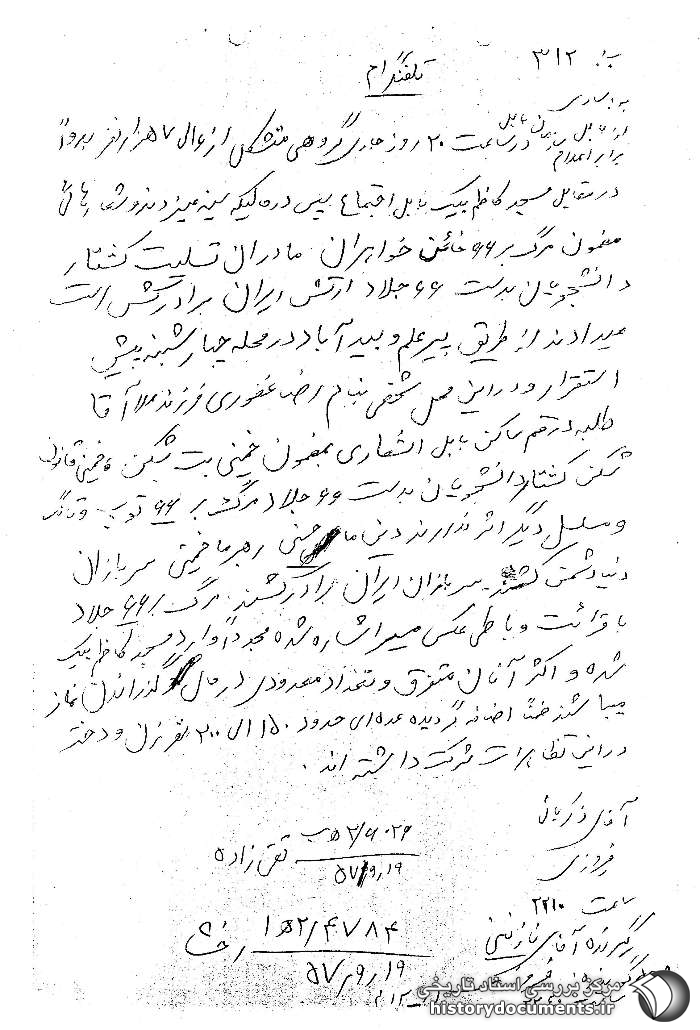 به: ۳۱۲
تلفنگرام
به: ساری
از: بابل
در ساعت ۲۰ روز جاری گروهی متشکل از ۷ هزار نفر
در مقابل مسجد کاظم بیک بابل اجتماع پس در حالیکه سینه میزدند و شعارهائی
بمضمون مرگ بر ۶۶ خائن خواهران مادران تسلیت کشتار
دانشجویان بدست ۶۶ جلاد ارتش ایران برادرکش است
میدادند از طریق پیرعلم و بیدآباد در محله چهارشنبه پیش
استقرار و در این محل شخصی بنام رضا غفوری فرزند ملاآقا
طلبه در قم ساکن بابل اشعاری بمضمون خمینی بت شکن خمینی قانون
شکن کشتار دانشجویان بدست ۶۶ جلاد مرگ بر ۶۶ توپ و تانک
و مسلسل دیگر اثر ندارند دین ما حسینی رهبر ما خمینی سربازان
دنیا دشمن کشند سربازان ایران برادرکشند مرگ بر ۶۶ جلاد
را قرائت و با طی عکس مسیر اشاره شده مجدداً وارد مسجد کاظم بیک
شده و اکثر آنان متفرق و تعداد معدودی در حال گذراندن نماز
میباشند ضمناً اضافه گردیده عده‌ای حدود ۱۵۰ الی ۲۰۰ نفر زن و دختر
در این تظاهرات شرکت داشته اند.
آقای ذکریائی
فیروزی
۳/۶۰۲۶ ه‍ ب تقی زاده
۵۷/۹/۱۹
ساعت ۲۲۱۰
گیرنده آقای نازنینی
۲/۴۷۸۴ ه‍ ۱
۱۹/۹/۵۷
مرکز بررسی اسناد تاریخی
historydocuments.ir